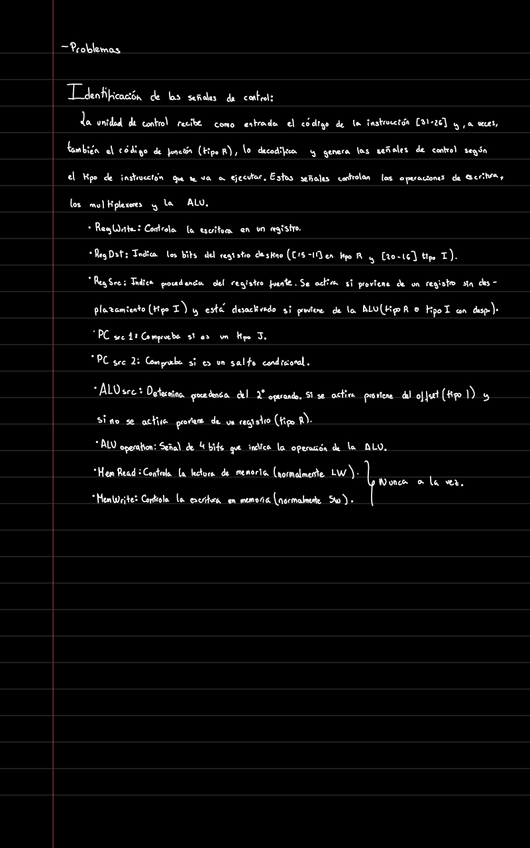 -Problemas
Identificación de las señales de control:
La unidad de control recibe como entrada el código de la instrucción [31-26] y, a veces,
también el código de función (tipo R), lo decodifica y genera las señales de control según
el tipo de instrucción que se va a ejecutar. Estas señales controlan las operaciones de escritura,
los multiplexores y la ALU.
· RegWrite: Controla la escritura en un registro.
· RegDst: Indica los bits del registro destino ([15-11] en tipo R y [20-16] tipo I).
· RegSrc: Indica procedencia del registro fuente. Se activa si proviene de un registro sin des-
plazamiento (tipo I) y está desactivado si proviene de la ALU (tipo R o tipo I con desp).
· PC src 1: Comprueba si es un tipo J.
· PC src 2: Comprueba si es un salto condicional.
· ALUsrc: Determina procedencia del 2º operando. Si se activa proviene del offset (tipo I) y
si no se activa proviene de un registro (tipo R).
· ALU operation: Señal de 4 bits que indica la operación de la ALU.
· Mem Read: Controla la lectura de memoria (normalmente LW).
Nunca a la vez.
· MemWrite: Controla la escritura en memoria (normalmente SW).